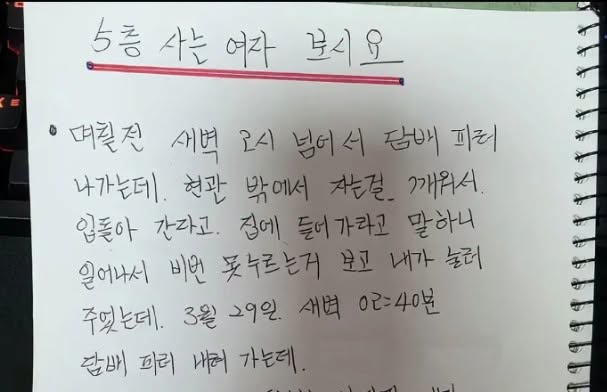 5층 사는 여자 보시요
며칠전 새벽 2시 넘어서 담배 피러
나가는데. 현관 밖에서 자는걸 깨워서.
입돌아 간다고. 집에 들어가라고 말하니
일어나서 비번 못누르는거 보고 내가 눌러
주었는데. 3월 29일. 새벽 02:40분
담배 피러 내려 가는데.